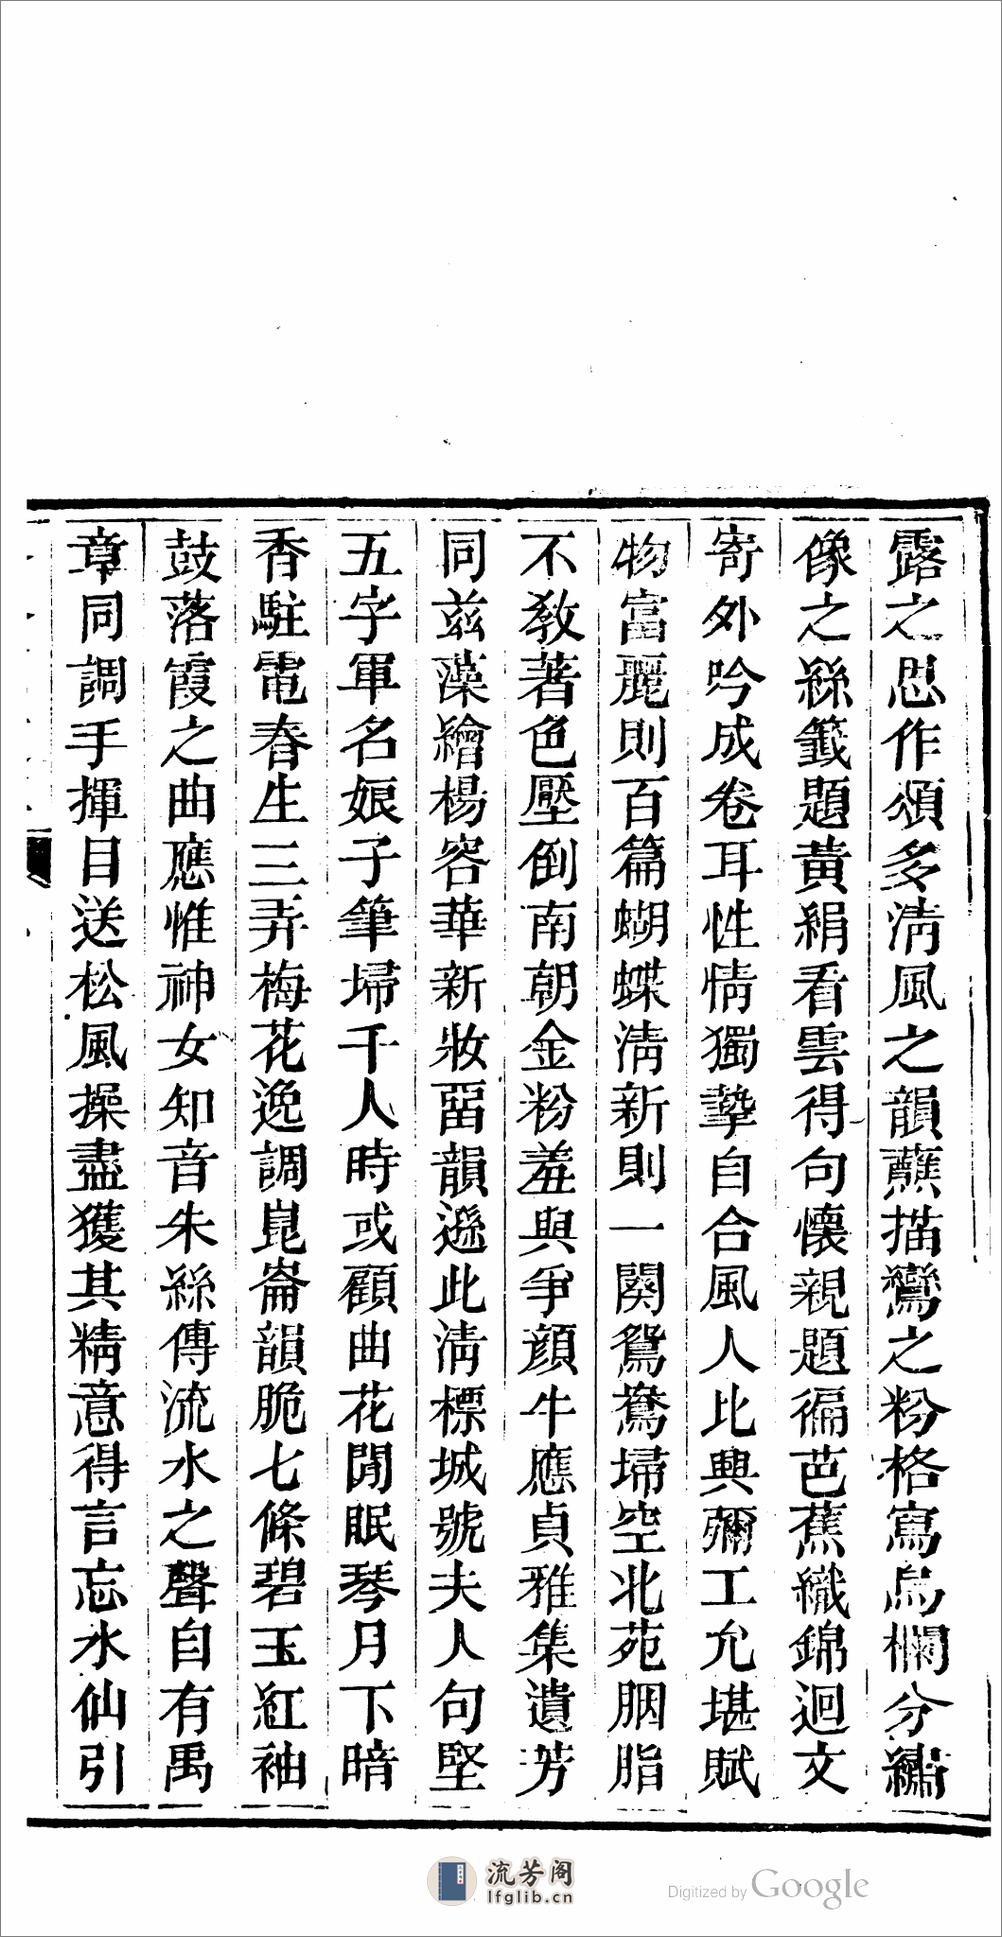 露之思作頌多淸風之韻蘸描鸞之粉格寫烏欄分繡
像之絲籤題黃絹看雲得句懷親題徧芭蕉織錦迴文
寄外吟成卷耳性情獨摯自合風人比興彌工允堪賦
物富麗則百篇蝴蝶淸新則一闋鴛鴦埽空北苑胭脂
不敎著色壓倒南朝金粉羞與爭顏牛應貞雅集遺芳
同玆藻繪楊容華新妝畱韻遜此淸標城號夫人句堅
五字軍名娘子筆埽千人時或顧曲花閒眠琴月下暗
香駐電春生三弄梅花逸調崑崙韻脆七條碧玉紅袖
鼓落霞之曲應惟神女知音朱絲傳流水之聲自有禹
章同調手揮目送松風操盡獲其精意得言忘水仙引
流芳阁
lfglib.cn
Digitized by Google